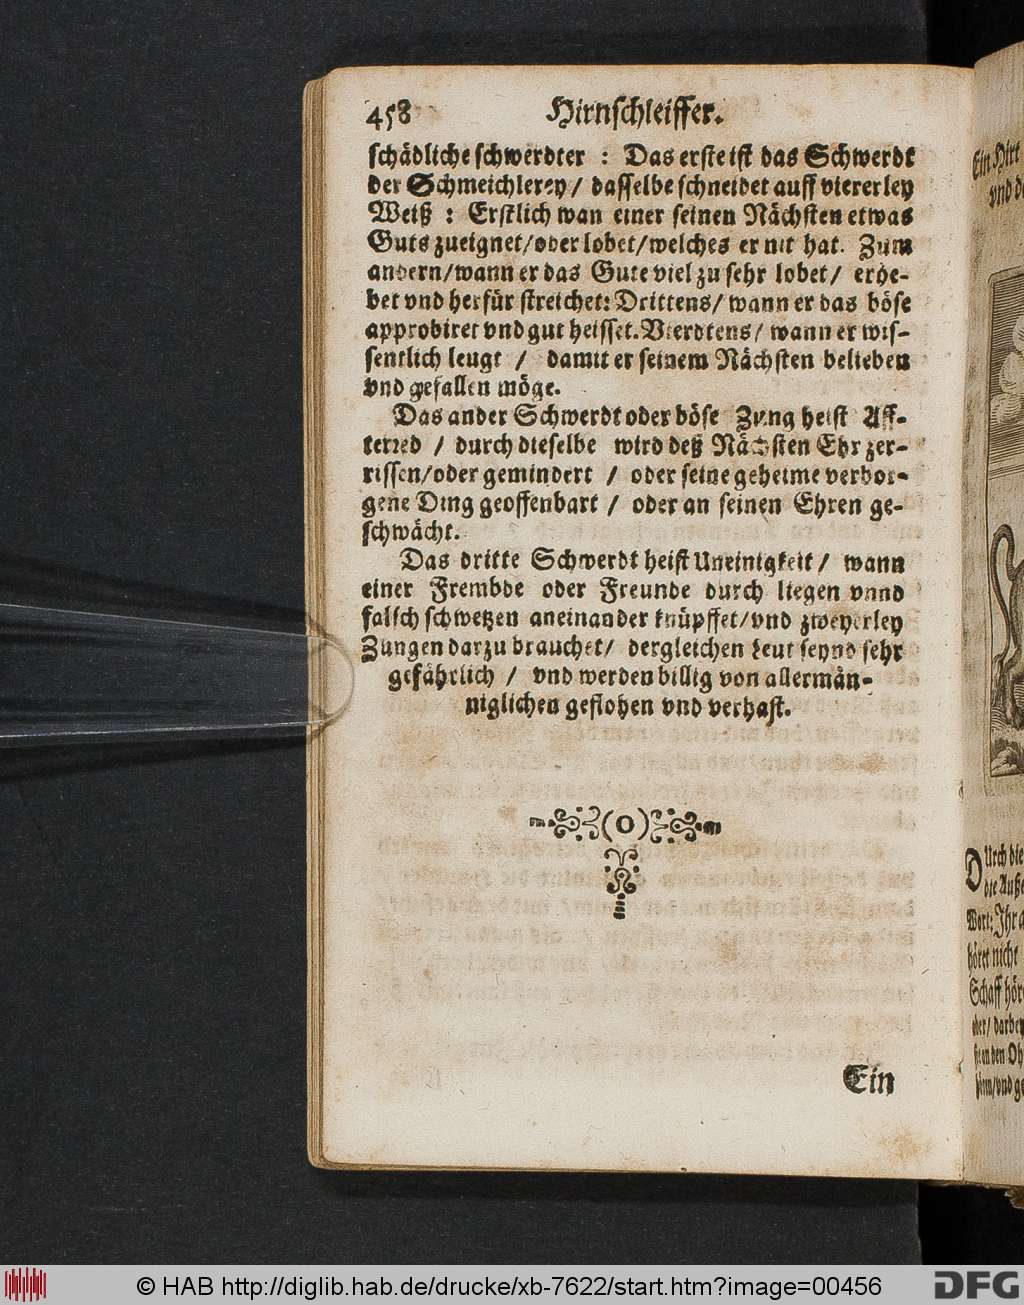 458 Hirnschleiffer.
schädliche schwerdter : Das erste ist das Schwerdt
der Schmeichlerey / dasselbe schneidet auff viererley
Weiß : Erstlich wan einer seinen Nächsten etwas
Guts zueignet/oder lobet/welches er nit hat. Zum
andern/wann er das Gute viel zu sehr lobet/ erhe-
bet vnd herfür streichet: Drittens/ wann er das böse
approbiret vnd gut heisset. Vierdtens/ wann er wis-
sentlich leugt / damit er seinem Nächsten belieben
vnd gefallen möge.
Das ander Schwerdt oder böse Zung heist Aff-
terred / durch dieselbe wird deß Nächsten Ehr zer-
rissen/oder gemindert / oder seine geheime verbor-
gene Ding geoffenbart / oder an seinen Ehren ge-
schwächt.
Das dritte Schwerdt heist Uneinigkeit / wann
einer Frembde oder Freunde durch liegen vnnd
falsch schwetzen aneinander knüpffet/vnd zweyerley
Zungen darzu brauchet/ dergleichen Leut seynd sehr
gefährlich / vnd werden billig von allermän-
niglichen geflohen vnd verhast.
(0)
Ein
Ein Hirt
vnd
DUrch die
die
Wort: Ihr
höret nicht
Schaff
aber/
© HAB http://diglib.hab.de/drucke/xb-7622/start.htm?image=00456
DFG